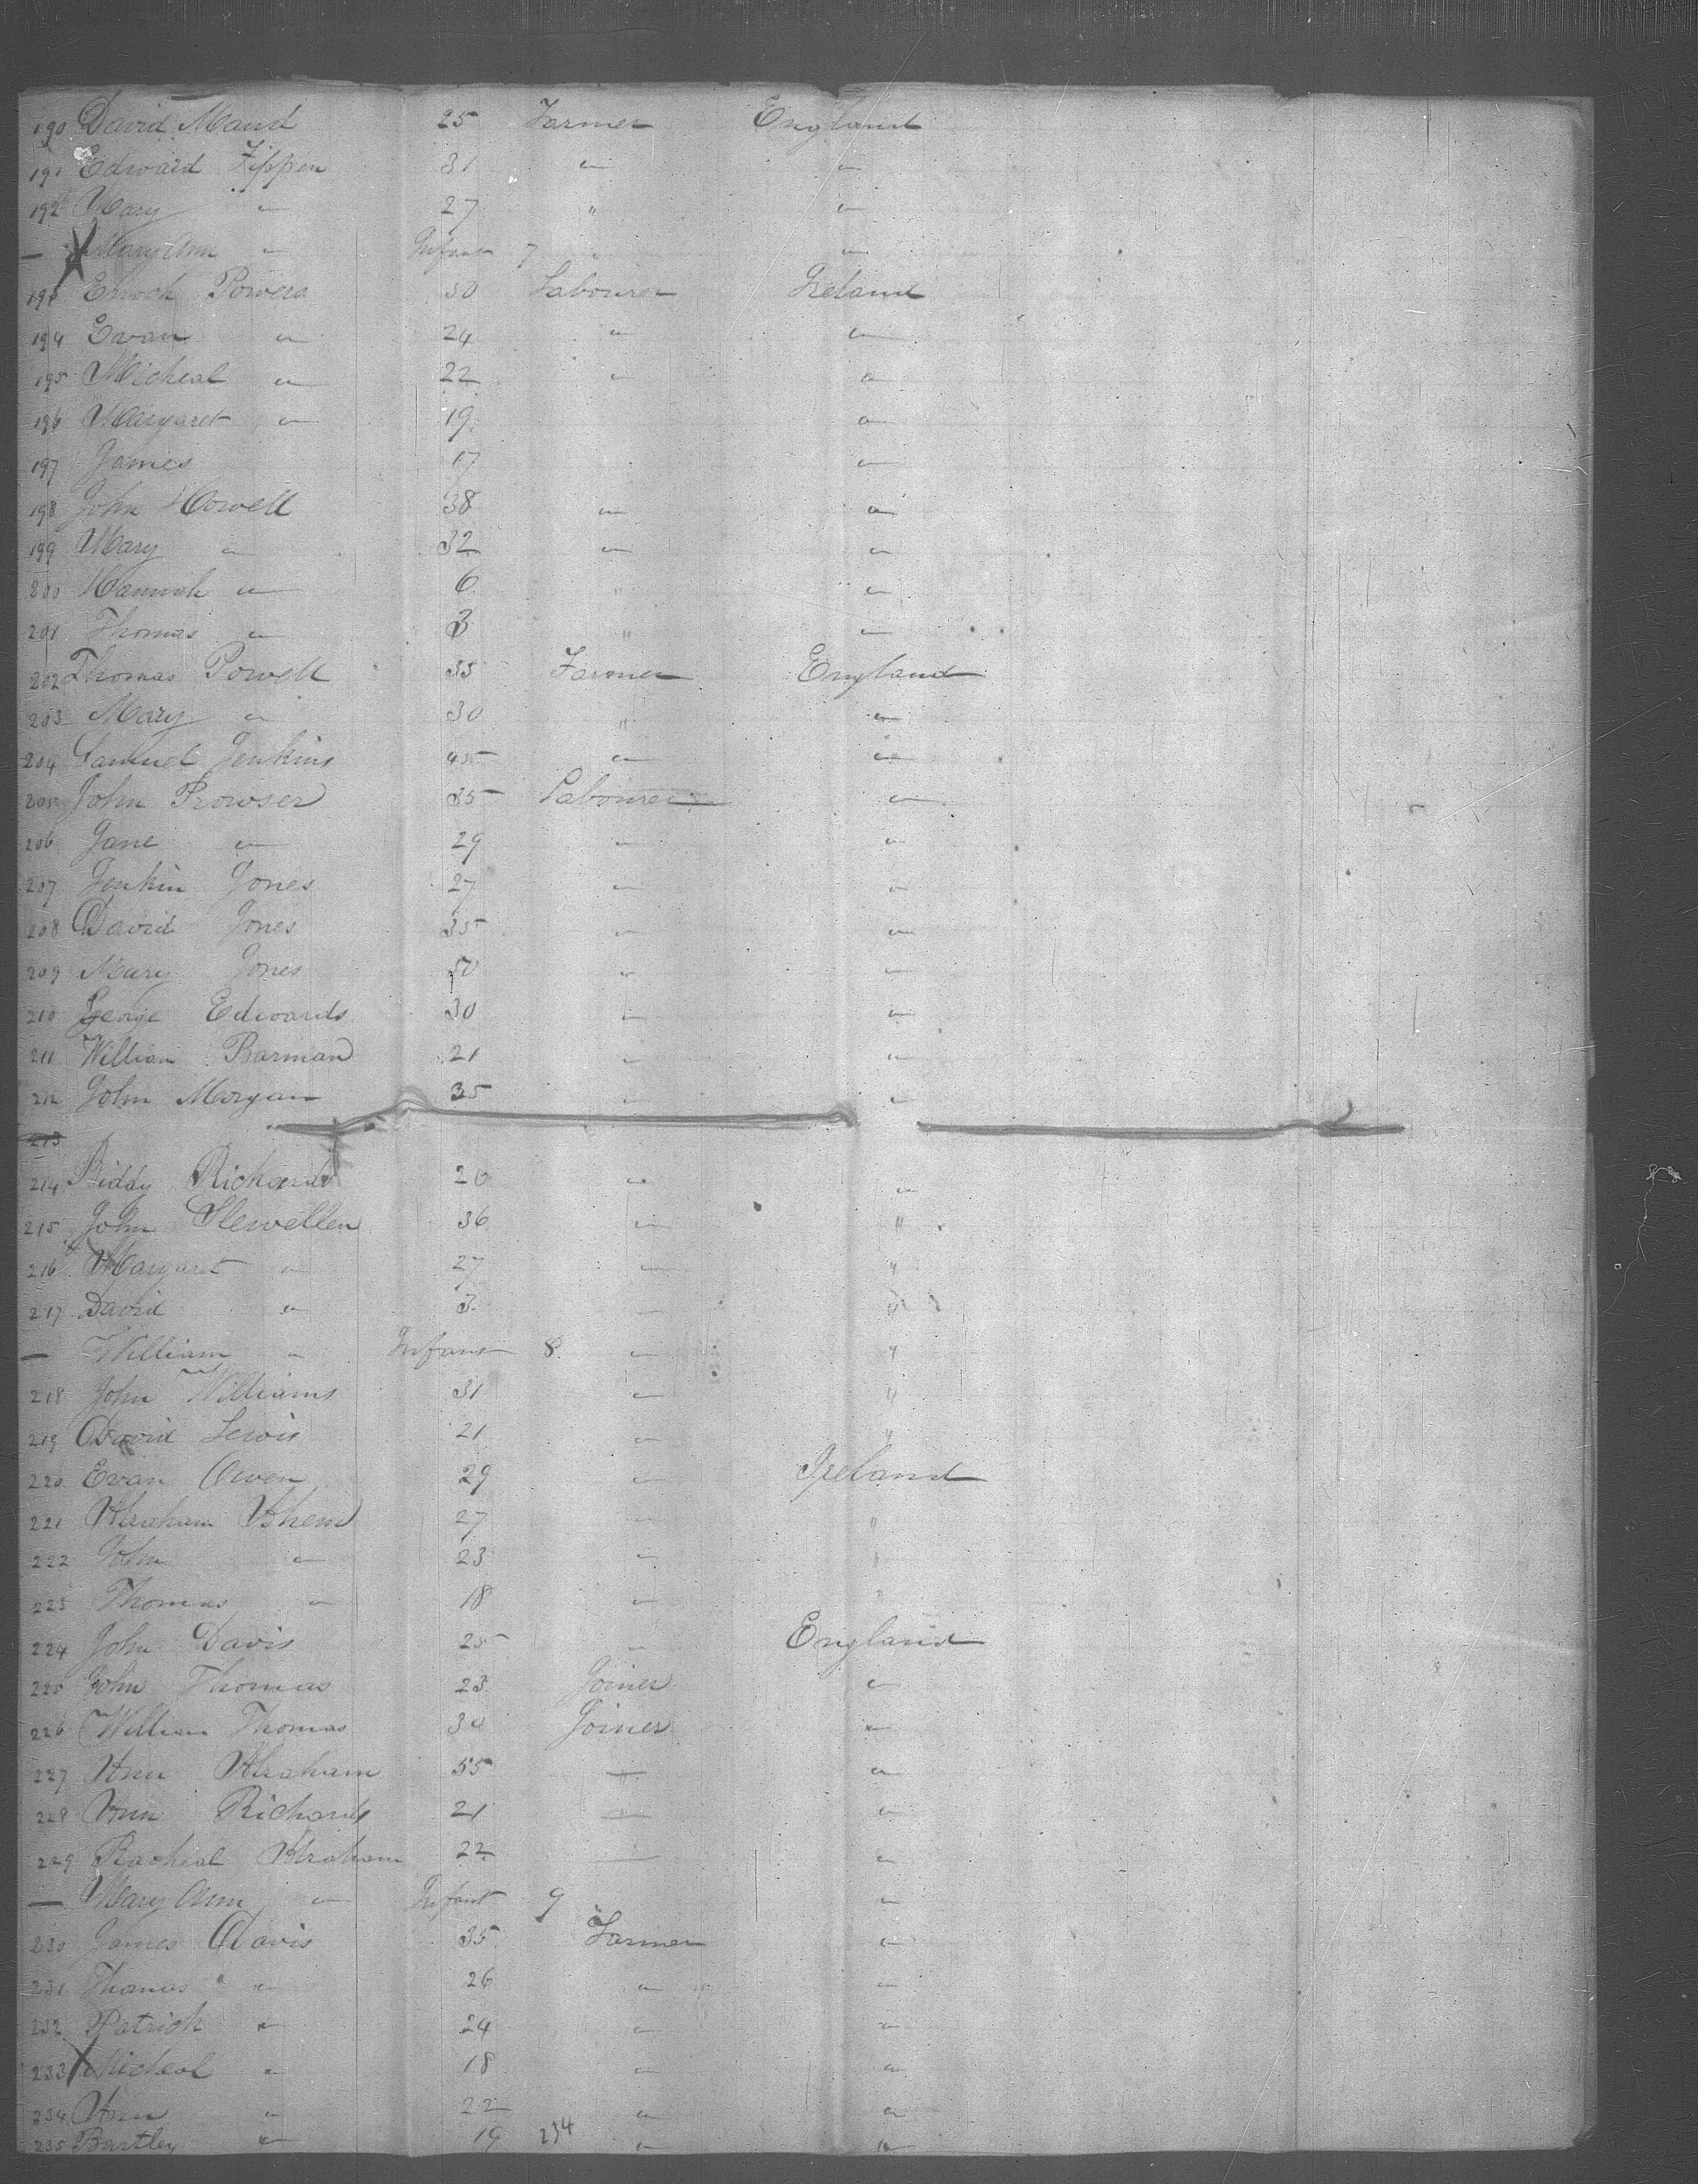 190 David Maud 25 Farmer England
191 Edward Tippen 31 " "
192 Mary " 27 " "
— X Mary Ann " Infant 7 " "
193 Enoch Powers 30 Labourer Ireland
194 Evan " 24 " "
195 Micheal " 22 " "
196 Margaret " 19 "
197 James 17 "
198 John Howell 38 " "
199 Mary " 32 " "
200 Hannah " 6 " "
201 Thomas " 3 " "
202 Thomas Powell 35 Farmer England
203 Mary " 30 " "
204 Samuel Jenkins 45 " "
205 John Prowser 35 Labourer "
206 Jane " 29 " "
207 Jenkin Jones 27 " "
208 David Jones 35 " "
209 Mary Jones 50 " "
210 George Edwards 30 " "
211 William Barman 21 " "
212 John Morgan 35 " "
213
214 Biddy Richards 20 " "
215 John Llewellen 36 " "
216 Margaret " 27 " "
217 David " 3 " "
— William " Infant 8 " "
218 John Williams 31 " "
219 David Lewis 21 " "
220 Evan Owen 29 " Ireland
221 Abraham 27 " "
222 John " 23 " "
223 Thomas " 18 " "
224 John Davis 25 " England
225 John Thomas 23 Joiner "
226 William Thomas 34 Joiner "
227 Ann Abraham 55 "
228 Ann Richards 21 "
229 Racheal Abraham 22 "
— Mary Ann " Infant 9 "
230 James Davis 35 Farmer "
231 Thomas " 26 " "
232 Patrick " 24 " "
233 X Micheal " 18 " "
234 Ann " 22 " "
235 Bartley " 19 234 " "